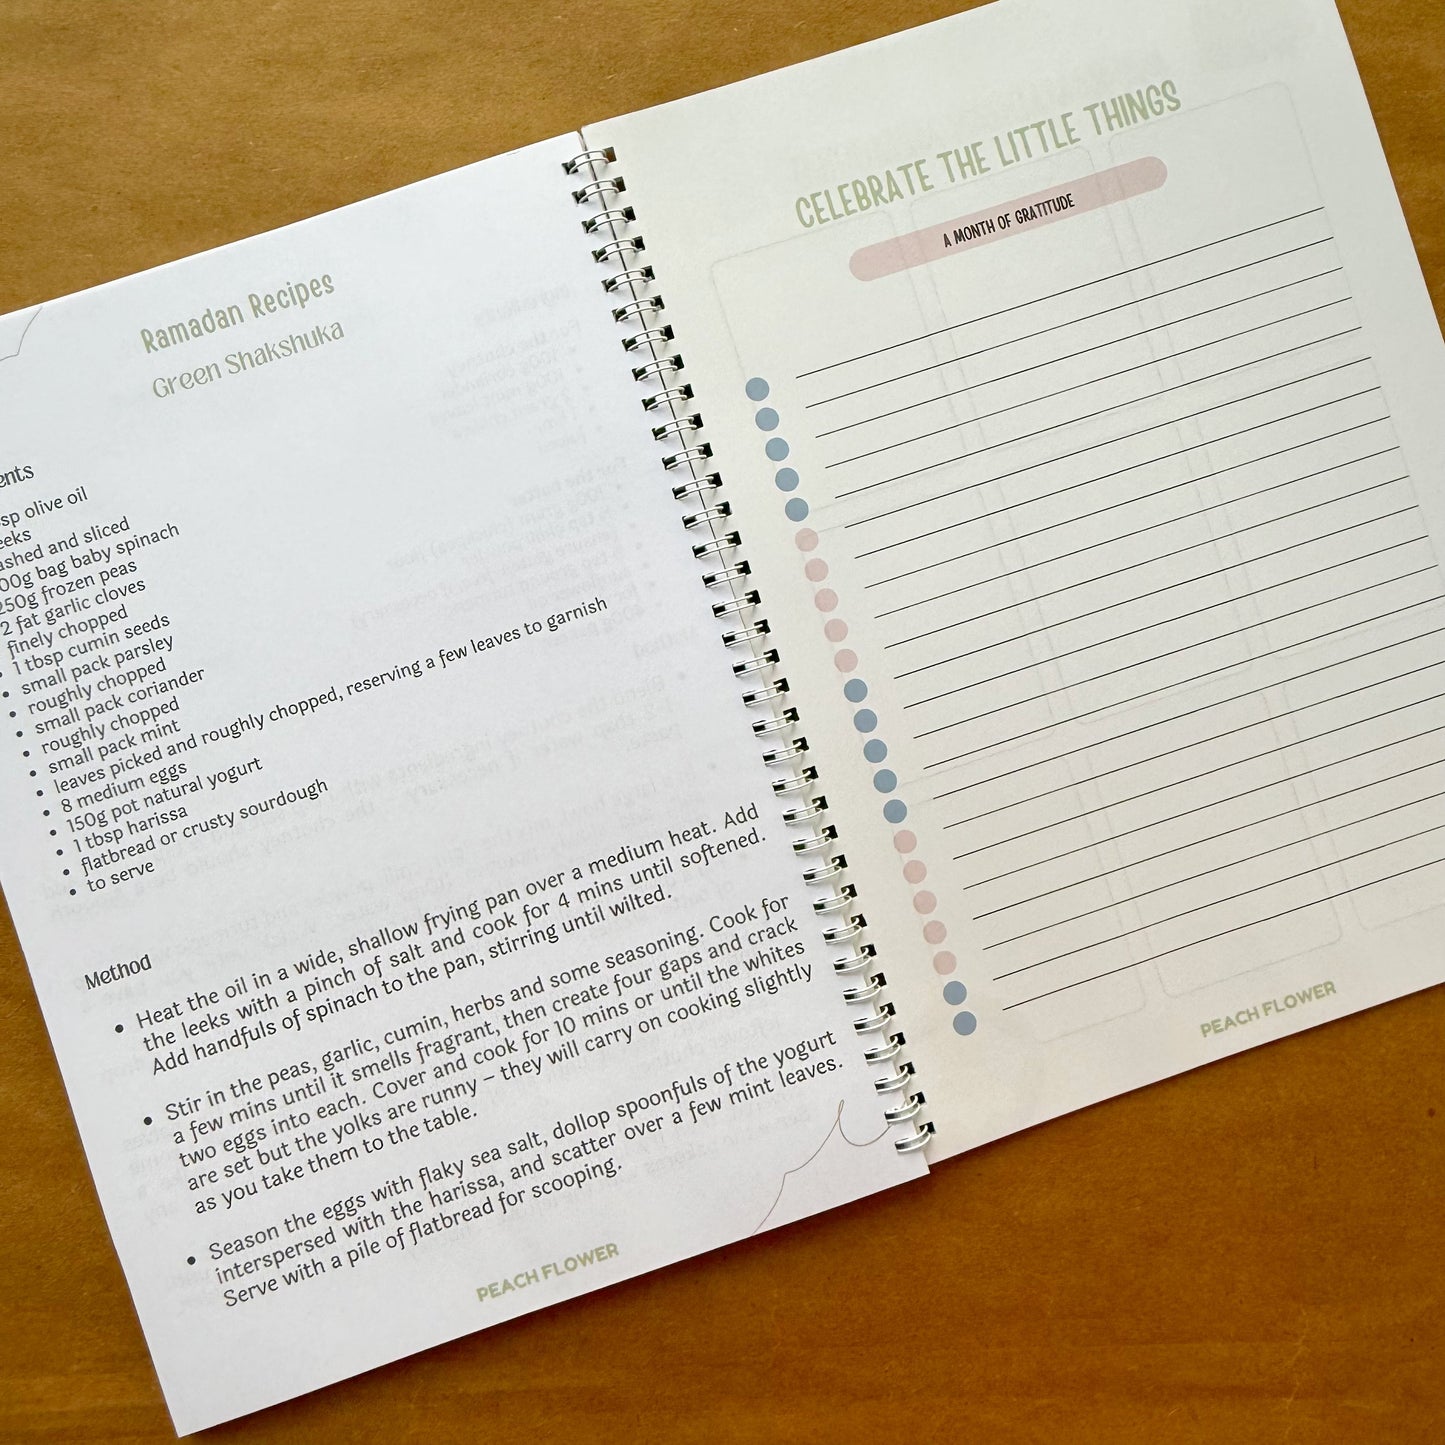 Ramadan Recipes
Green Shakshuka
sp olive oil
ashed and sliced
00g bag baby spinach
250g frozen peas
2 fat garlic cloves
finely chopped
• 1 tbsp cumin seeds
• small pack parsley
• roughly chopped
• small pack coriander
• roughly chopped
• small pack mint
• leaves picked and roughly chopped, reserving a few leaves to garnish
• 8 medium eggs
• 150g pot natural yogurt
• 1 tbsp harissa
• flatbread or crusty sourdough
• to serve
Method
• Heat the oil in a wide, shallow frying pan over a medium heat. Add
the leeks with a pinch of salt and cook for 4 mins until softened.
Add handfuls of spinach to the pan, stirring until wilted.
• Stir in the peas, garlic, cumin, herbs and some seasoning. Cook for
a few mins until it smells fragrant, then create four gaps and crack
two eggs into each. Cover and cook for 10 mins or until the whites
are set but the yolks are runny – they will carry on cooking slightly
as you take them to the table.
• Season the eggs with flaky sea salt, dollop spoonfuls of the yogurt
interspersed with the harissa, and scatter over a few mint leaves.
Serve with a pile of flatbread for scooping.
PEACH FLOWER
CELEBRATE THE LITTLE THINGS
A MONTH OF GRATITUDE
PEACH FLOWER